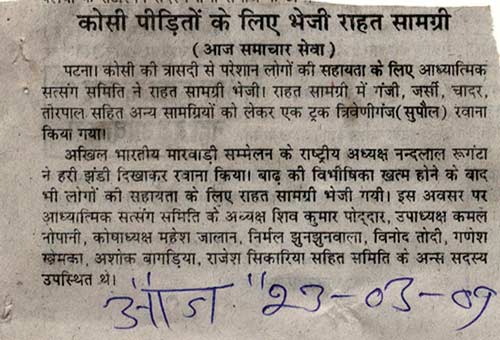 कोसी पीड़ितों के लिए भेजी राहत सामग्री
( आज समाचार सेवा )
पटना। कोसी की त्रासदी से परेशान लोगों की सहायता के लिए आध्यात्मिक
सत्संग समिति ने राहत सामग्री भेजी। राहत सामग्री में गंजी, जर्सी, चादर,
तोरपाल सहित अन्य सामग्रियों को लेकर एक ट्रक त्रिवेणीगंज(सुपौल) रवाना
किया गया।
अखिल भारतीय मारवाड़ी सम्मेलन के राष्ट्रीय अध्यक्ष नन्दलाल रूगंटा
ने हरी झंडी दिखाकर रवाना किया। बाढ़ की विभीषिका खत्म होने के बाद
भी लोगों की सहायता के लिए राहत सामग्री भेजी गयी। इस अवसर पर
आध्यात्मिक सत्संग समिति के अध्यक्ष शिव कुमार पोद्दार, उपाध्यक्ष कमल
नोपानी, कोषाध्यक्ष महेश जालान, निर्मल झुनझुनवाला, विनोद तोदी, गणेश
खेमका, अशोक बागड़िया, राजेश सिकारिया सहित समिति के अन्स सदस्य
उपस्थित थे।
"आज" 23-03-09